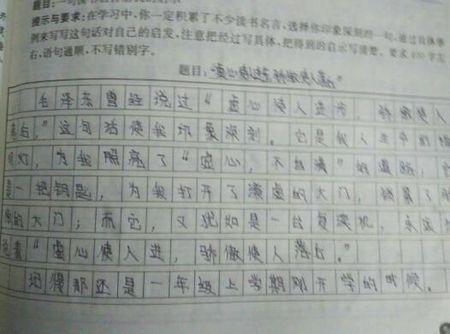 题目：一句读书名言给我的启示
提示与要求：在学习中，你一定积累了不少读书名言，选择你印象深刻的一句，通过具体事
例来写写这句话对自己的启发，注意把经过写具体，把得到的启示写清楚。要求450字左
右，语句通顺，不写错别字。
题目：虚心使人进步，骄傲使人落后"
毛泽东曾经说过"虚心使人进步，骄傲使人
落后。"这句话使我印象深刻。它是我人生中的
灯，为我照亮了"虚心，不自满"的道路；它
是一把钥匙，为我打开了谦虚的大门，
的大门；而它，又犹如是一台复读机，永远
着"虚心使人进，骄傲使人落后。"
记得那还是一年级上学期刚开学的时候。